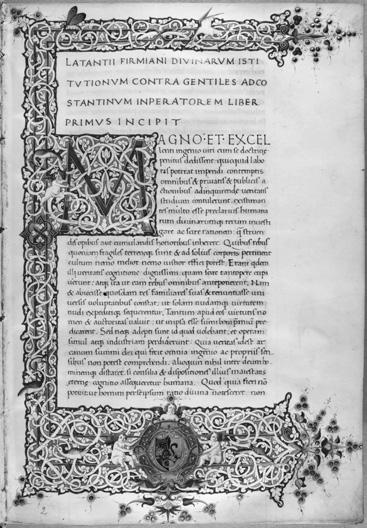 LATANTII FIRMIANI DIVINARVM ISTI
TVTIONVM CONTRA GENTILES AD CO
STANTINVM INPERATOREM LIBER
PRIMVS INCIPIT
MAGNO·ET·EXCEL
lenti ingenio viri cum se doctrinę
penitus dedissent: quicquid labo
ris poterat impendi contemptis
omnibus & privatis & publicis a
ctionibus ad inquirendę veritatis
studium contulerunt: existiman
tes multo esse preclarius humana
rum divinarumque rerum investi
gare ac scire rationem: quam struen
dis opibus aut cumulandis honoribus inherere. Quibus rebus
quoniam fragiles terrenęque sunt & ad solius corporis pertinent
cultum nemo melior nemo iustior effici potest. Erant quidem
illi veritatis cognitione dignissimi quam scire tantopere cupi
verunt: atque ita ut eam rebus omnibus anteponerent. Nam
& abiecisse quosdam res familiares suas & renuntiasse uni
versis voluptatibus constat: ut solam nudamque virtutem
nudi expeditique sequerentur. Tantum apud eos virtutis no
men & auctoritas valuit: ut in ipsa esse summum bonum pre
dicarent. Sed neque adepti sunt id quod volebant: et operam
simul atque industriam perdiderunt: Quia veritas idest ar
canum summi dei qui fecit omnia ingenio ac propriis sen
sibus non potest comprehendi. alioquin nihil inter deum ho
minemque distaret: si consilia & dispositiones illius maiestatis
eternę cognitio assequeretur humana. Quod quia fieri non
potuit ut homini per se ipsum ratio divina notesceret: non
2